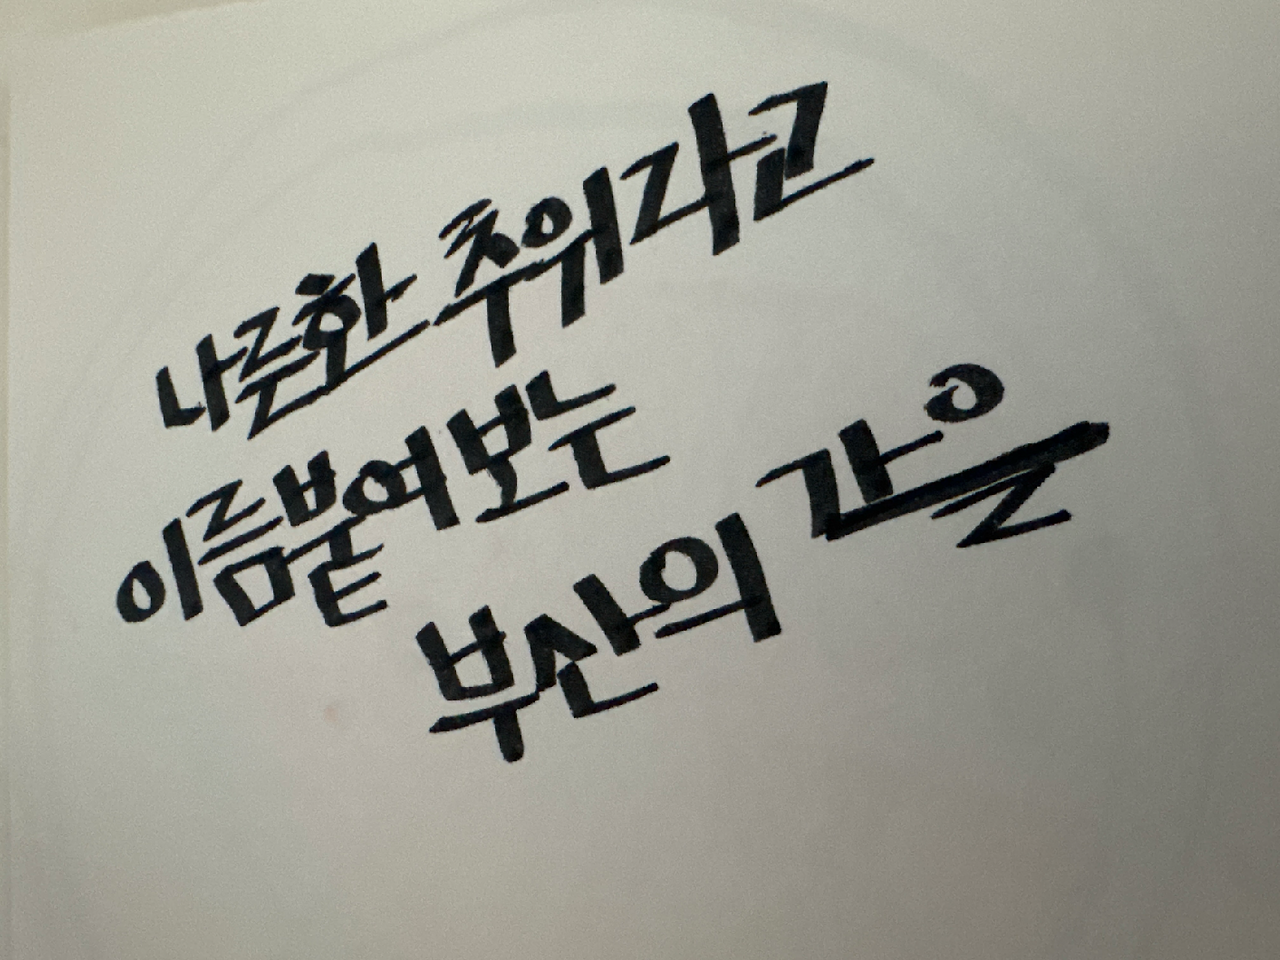 나른한 추위라고
이름붙여보는
부산의 가을